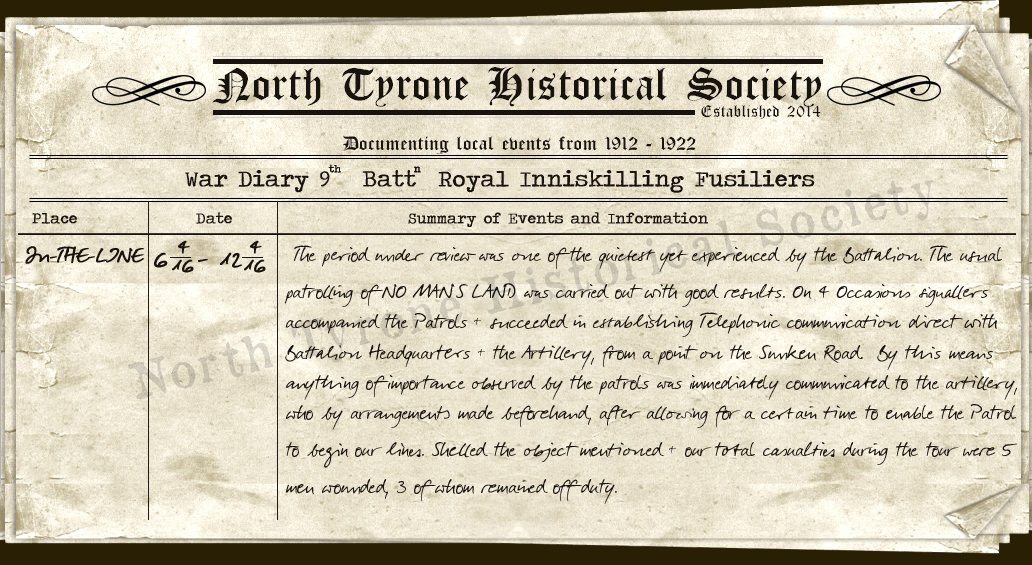 North Tyrone Historical Society
Established 2014
Documenting local events from 1912 - 1922
War Diary 9th Battn Royal Inniskilling Fusiliers
Place Date Summary of Events and Information
In-THE-LINE 6 4/16 - 12 4/16 The period under review was one of the quietest yet experienced by the Battalion. The usual
patrolling of NO MANS LAND was carried out with good results. On 4 Occasions signallers
accompanied the Patrols + succeeded in establishing Telephonic communication direct with
Battalion Headquarters + the Artillery, from a point on the Sunken Road. By this means
anything of importance observed by the patrols was immediately communicated to the artillery,
who by arrangements made beforehand, after allowing for a certain time to enable the Patrol
to begin our lines. Shelled the object mentioned + our total casualties during the tour were 5
men wounded, 3 of whom remained off duty.
North Tyrone Historical Society